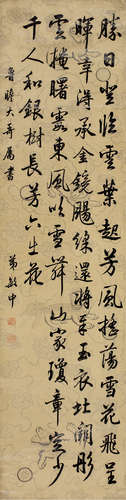 勝日登臨雲葉起芳風搖蕩雪花飛呈
暉幸得承金鏡颺綵還將上玉衣北闕彤
雲掩曙霞東風吹雪舞山家瓊章定少
千人和銀樹長芳六出花
魯瞻大哥屬書
弟敏中